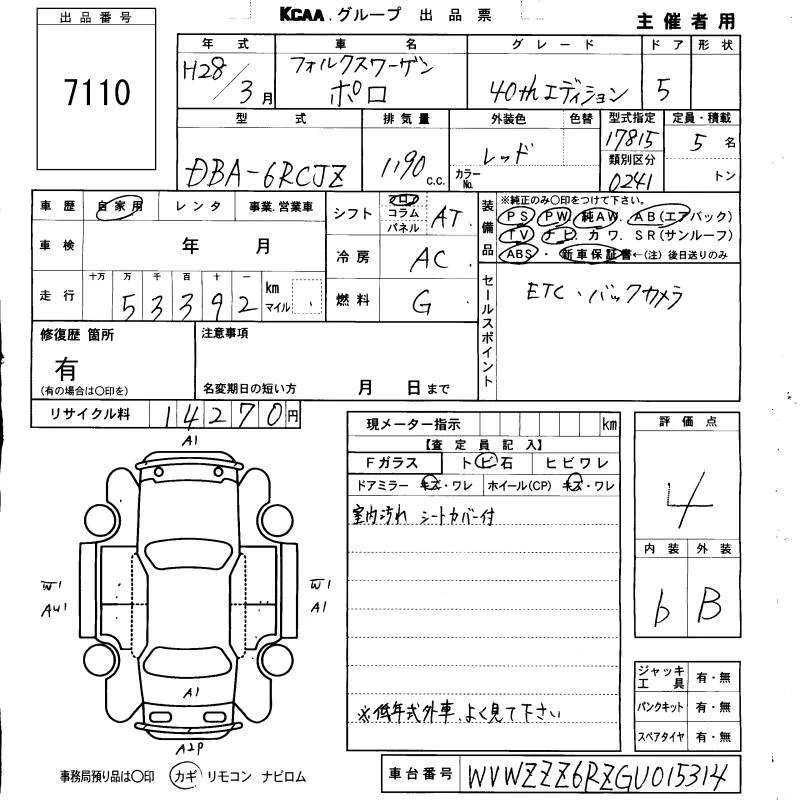 KCAA.グループ 出品票
主催者用
出品番号
7110
年式 車名 グレード ドア 形状
H28/3月 フォルクスワーゲン ポロ 40thエディション 5
型式 排気量 外装色 色替 型式指定 定員・積載
DBA-6RCJZ 1190 c.c. レッド カラーNo. 17815 5名
類別区分 0241 トン
車歴 自家用 レンタ 事業.営業車
車検 年 月
走行 十万 万 千 百 十 一
53392 km マイル
シフト フロア コラム パネル AT
冷房 AC
燃料 G
装備品 ※純正のみ〇印をつけて下さい。
PS PW 純AW. AB(エアバック)
TV ナビ. カワ. SR(サンルーフ)
ABS・新車保証書←(注) 後日送りのみ
セールスポイント
ETC・バックカメラ
修復歴 箇所
有
(有の場合は〇印を)
注意事項
名変期日の短い方 月 日まで
リサイクル料 14270円
現メーター指示 km
【査定員記入】
Fガラス トビ石 ヒビワレ
ドアミラー キズ・ワレ ホイール(CP) キズ・ワレ
室内汚れ シートカバー付
※低年式外車.よく見て下さい
評価点
4
内装 外装
b B
ジャッキ工具 有・無
パンクキット 有・無
スペアタイヤ 有・無
A1
W1
AU1
W1
A1
A1
A2P
事務局預り品は〇印 カギ リモコン ナビロム
車台番号 WVWZZZ6RZGU015314